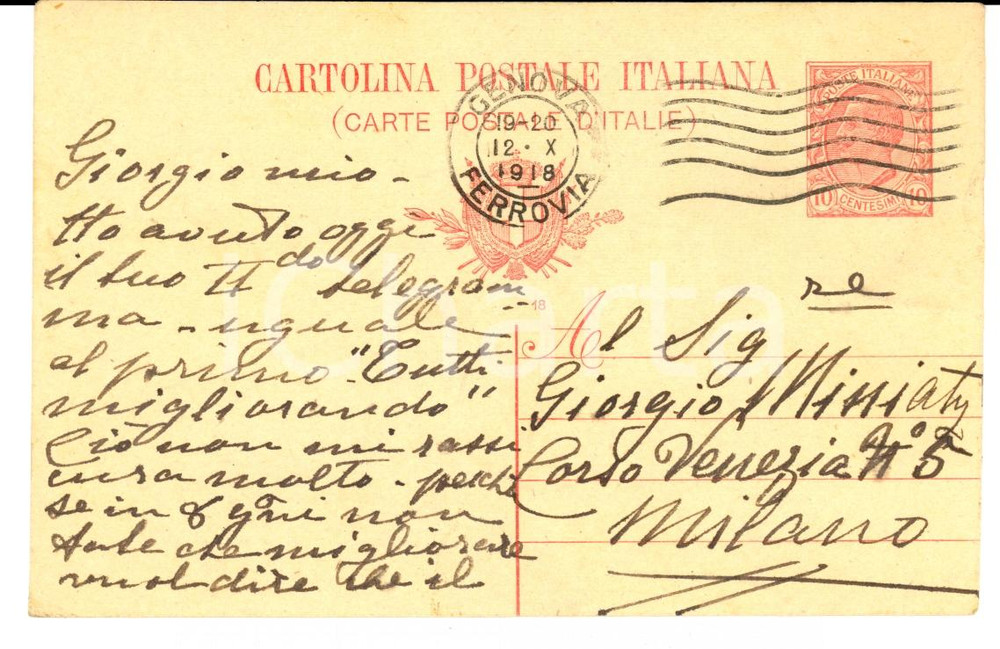 CARTOLINA POSTALE ITALIANA
(CARTE POSTALE D'ITALIE)
GENOVA
19-20
12 · X
1918
FERROVIA
POSTE ITALIANE
10 CENTESIMI 10
Giorgio mio -
Ho avuto oggi
il tuo II do telegram
ma - uguale
al primo "Tutti
migliorando"
Ciò non mi rassi
cura molto - perchè
se in 8 giorni non
fate che migliorare
vuol dire che il
18
Al Sig
Giorgio Miniaty
Corso Venezia N° 5
Milano
Charta